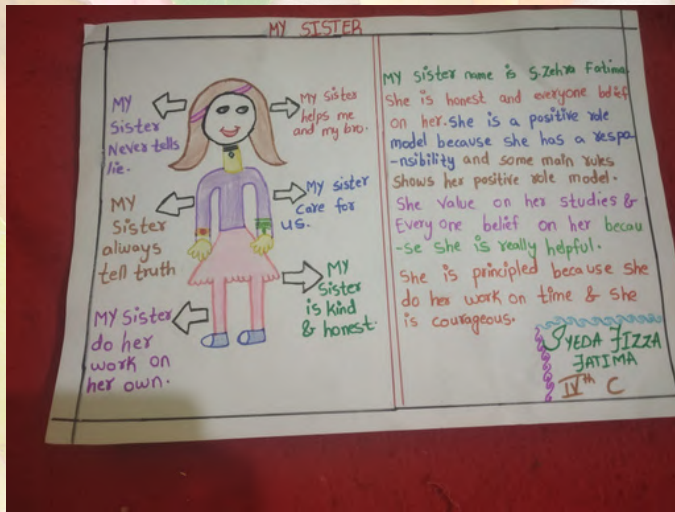 MY SISTER
MY
Sister
Never tells
lie.
MY
Sister
always
tell truth
MY Sister
do her
work on
her own.
My sister
helps me
and my bro.
My sister
care for
us.
MY
Sister
is kind
& honest.
MY Sister name is S.Zehra Fatima
She is honest and everyone belief
on her. She is a positive role
model because she has a respo
-nsibility and some main rules
shows her positive role model.
She value on her studies &
Every one belief on her becau
-se she is really helpful.
She is principled because she
do her work on time & she
is courageous.
SYEDA FIZZA
FATIMA
IVth C